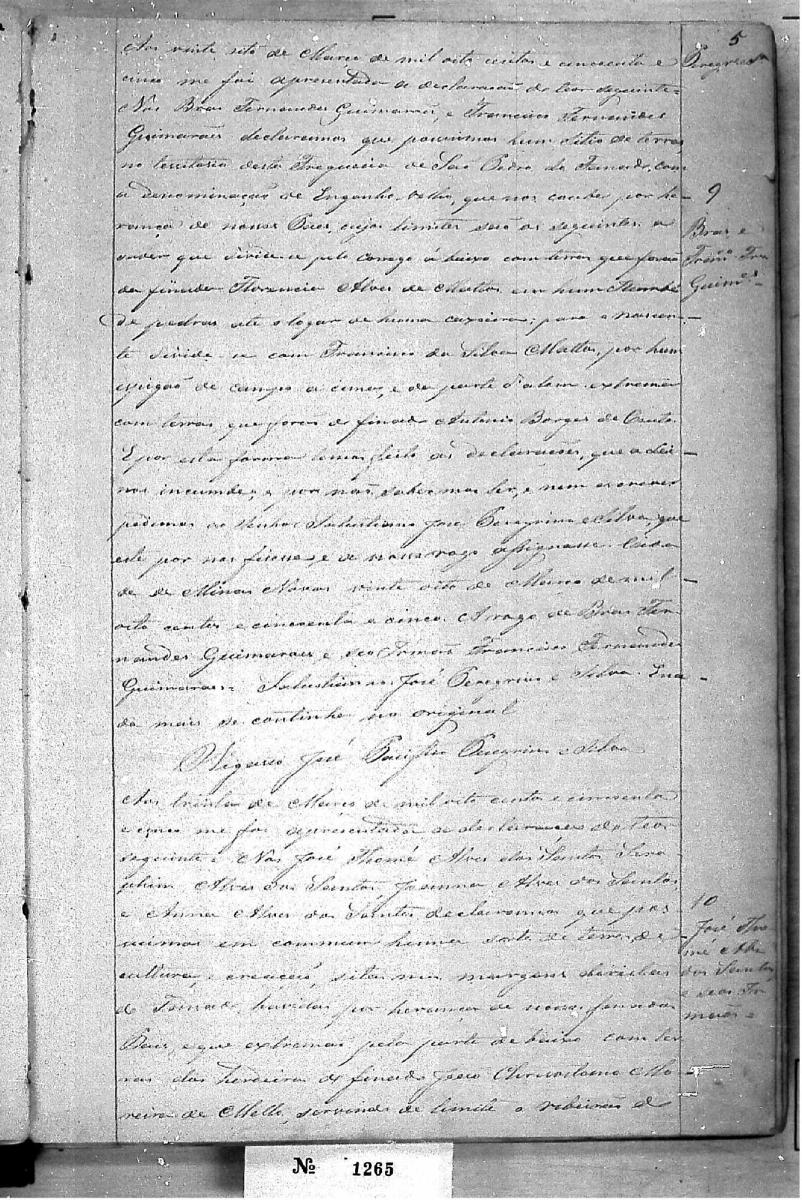 5
Aos vinte sete de Março de mil oito centos e cincoenta e
cinco me foi apresentada a declaração do teor seguinte=
Nos Bras Fernandes Guimarães, e Francisco Fernandes
Guimarães declaramos que possuimos hum sitio de terras
no territorio desta Freguesia de São Pedro do Fanado, com
a denominação de Engenho Velho, que nos coube por he-
rança de nossos Paes, cujos limites são os seguintes: a
saber que divide-se pelo corego á baixo com terras que forão
do finado Florencio Alves de Mattos, em hum
de pedras até o logar de huma caxoeira; para o nascen-
te divide-se com Francisco da Silva Mattos, por hum
espigão de campo a cima, e da parte d'alem extrema
com terras que forão do finado Antonio Borges do Couto.
E por esta forma temos feito as declarações, que a Lei
nos incumbe, e por não sabermos ler, e nem escrever
pedimos ao Senhor Salustiano José Peregrino e Silva, que
este por nos fizesse, e a nosso rogo assignasse. Cida-
de de Minas Novas vinte oito de Março de mil
oito centos e cincoenta e cinco. A rogo de Bras Fer-
nandes Guimarães, e seo Irmão Francisco Fernandes
Guimarães= Salustiano José Peregrino e Silva. E na-
da mais se continha no original
Vigario José Pacifico Peregrino e Silva
Aos trinta de Março de mil oito centos e cincoenta
e cinco me foi apresentada a declaração do teor
seguinte= Nos José Thomé Alves dos Santos, Sera-
phim Alves dos Santos, Joanna Alves dos Santos,
e Anna Alves dos Santos declaramos que pos-
suimos em commum huma sorte de terras de
cultura, e creação, sitas nas margens direitas
do Fanado, havidas por herança de nossos finados
Paes, e que extremão pela parte de baixo com ter-
ras dos herdeiros do finado João Chrisostomo Mo-
reira de Mello, servindo de limite o ribeirão de
Peregrino
9
Bras e
Franco. Fes.
Guimes.
10
José Tho-
mé Alz
dos Santos,
e seos Ir-
mãos=
Nº 1265